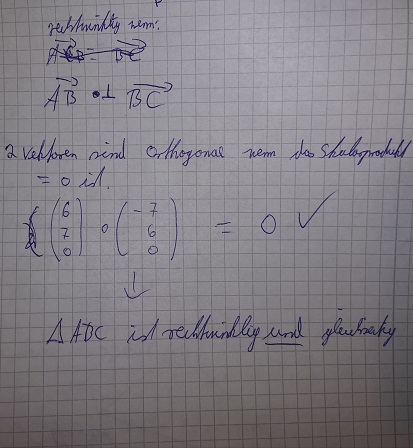 rechtwinklig wenn:
AB ⊥ BC
2 Vektoren sind Orthogonal wenn das Skalarprodukt
= 0 ist.
(6 7 0) ∘ (-7 6 0) = 0 ✓
↓
△ ABC ist rechtwinklig und gleichschenklig